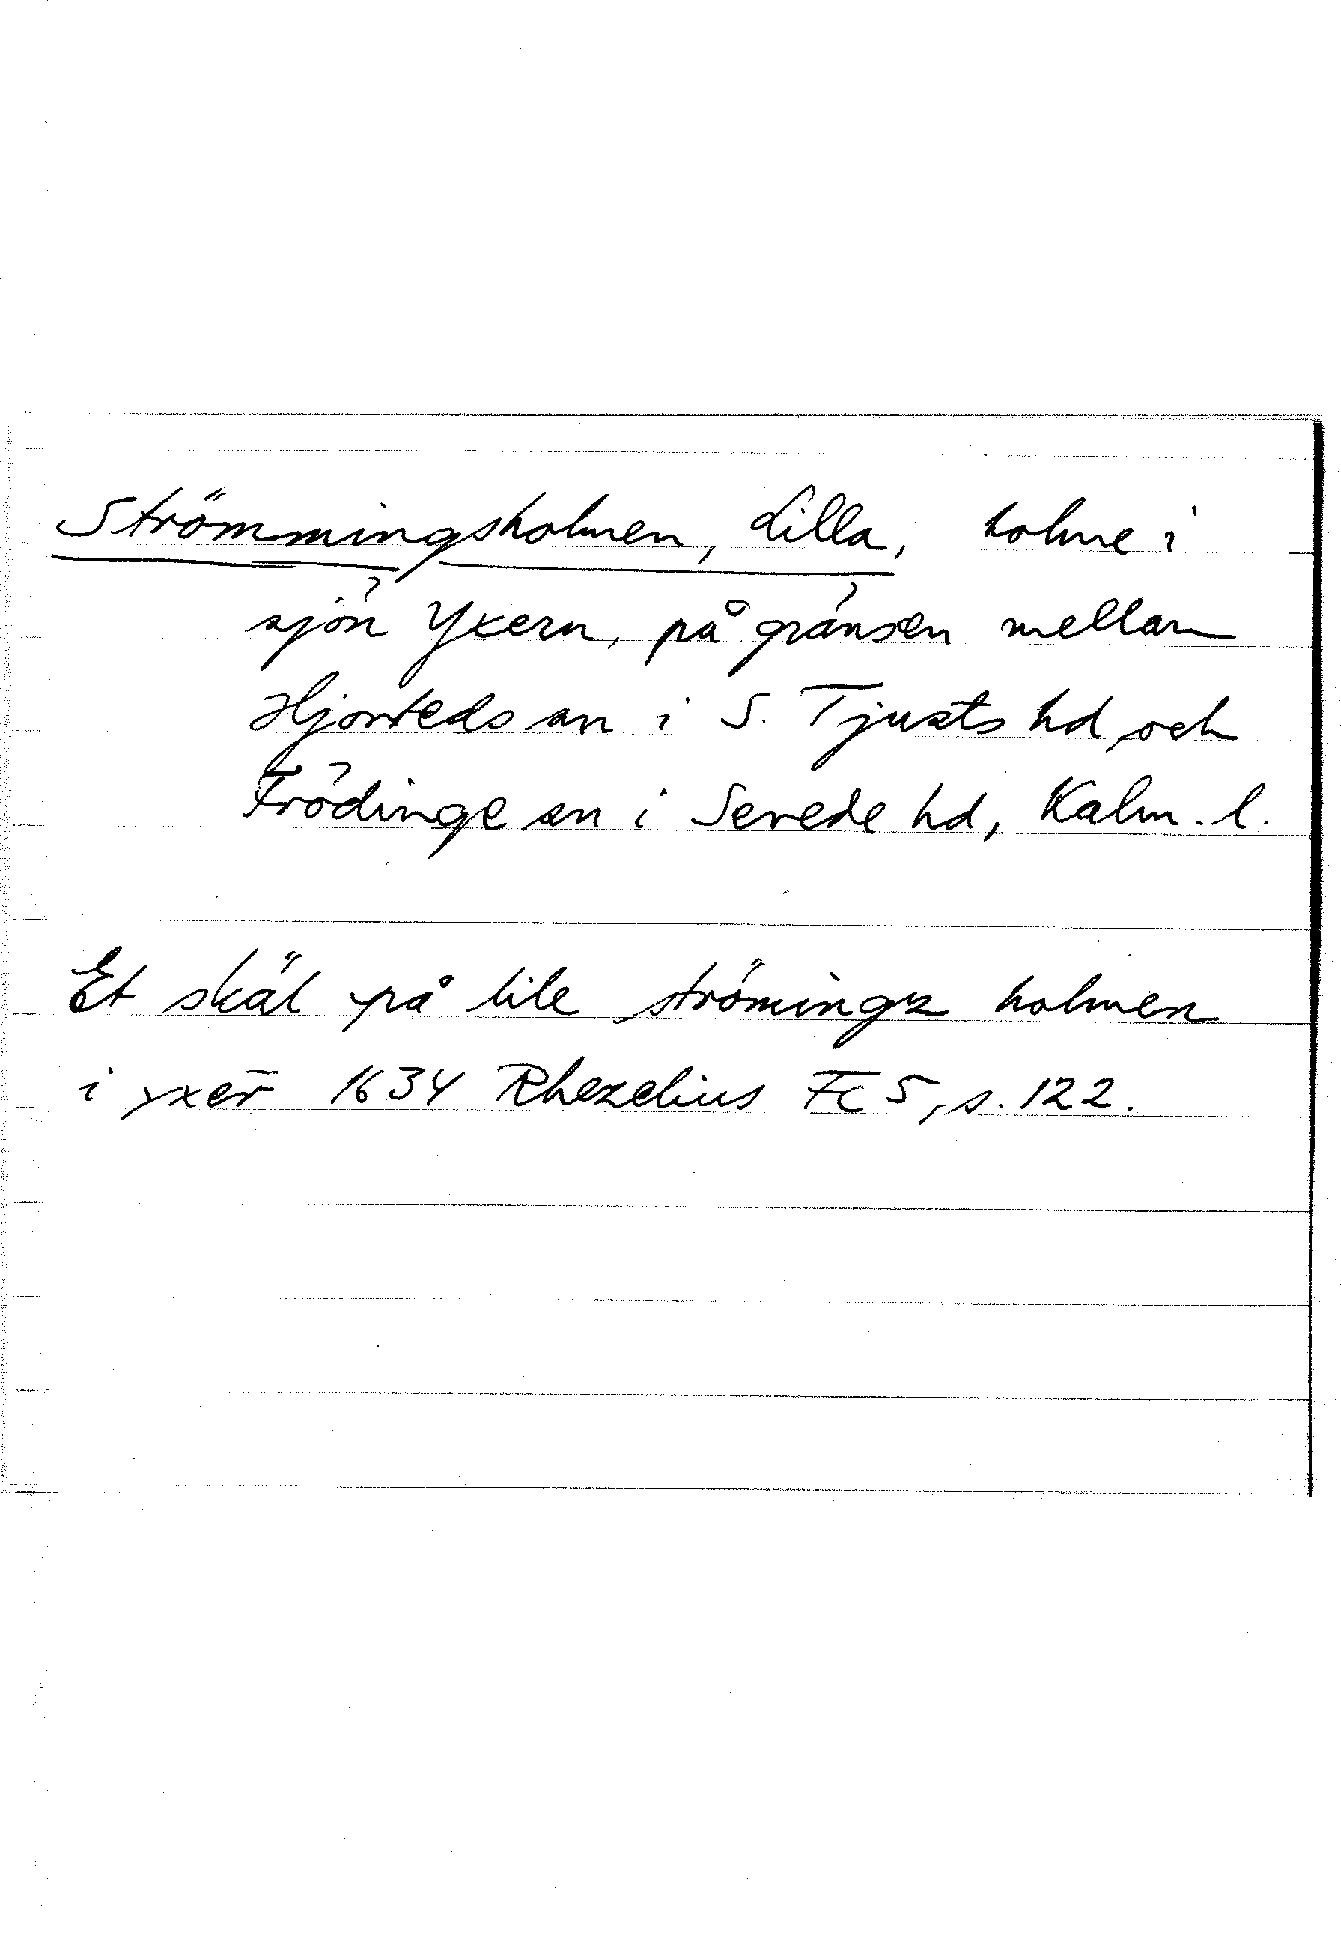 Strömmingsholmen, Lilla, holme i
sjön Yxern, på gränsen mellan
Hjorteds sn i S. Tjusts hd och
Frödinge sn i Sevede hd, Kalm. l.
Et skäl på lile strömingz holmen
i yxer̄ 1634 Rhezelius Fc 5, s. 122.